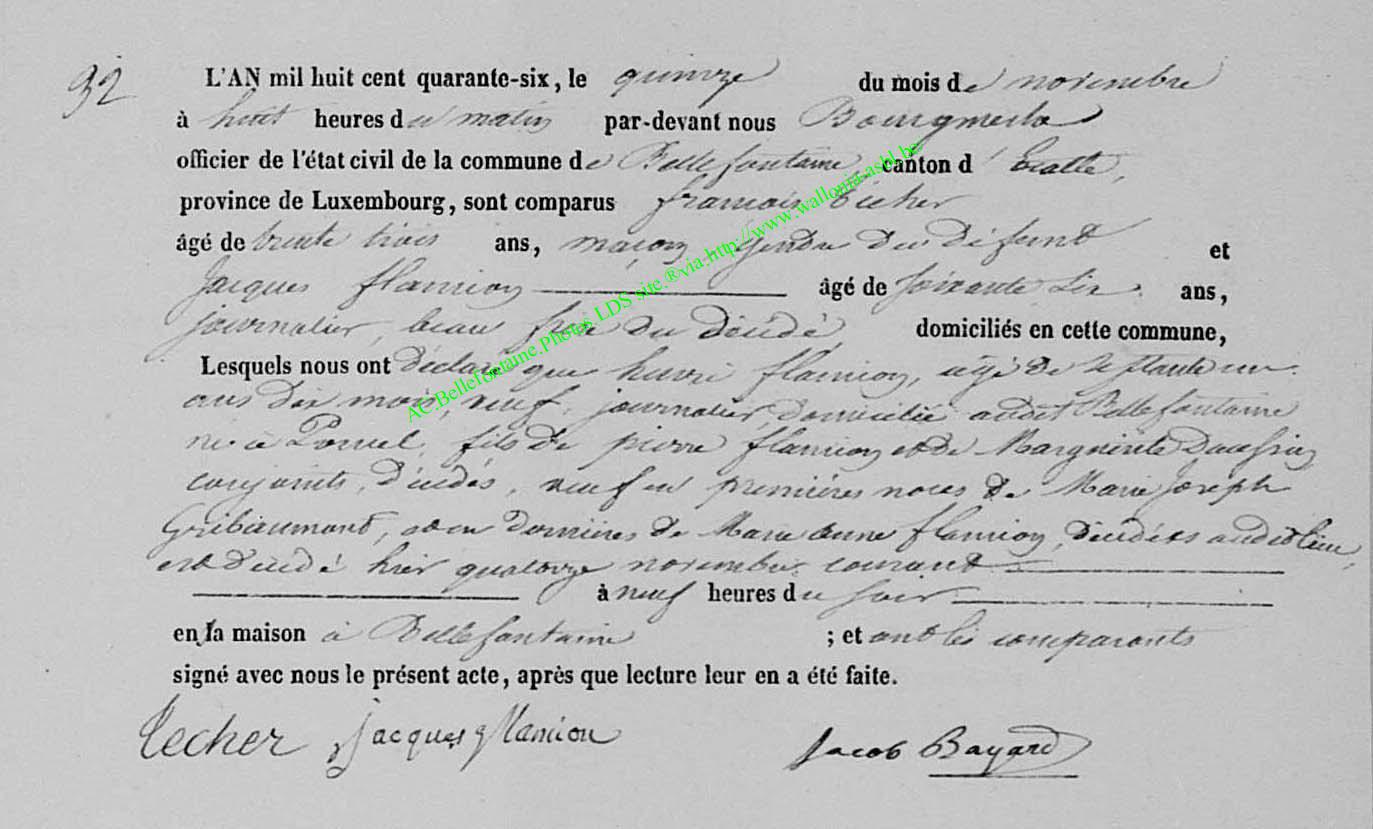 32
L'AN mil huit cent quarante-six, le quinze du mois de novembre
à huit heures du matin par-devant nous Bourgmestre
officier de l'état civil de la commune de Bellefontaine, canton d'Etalle,
province de Luxembourg, sont comparus françois
âgé de trente trois ans, maçon, gendre du défunt et
Jacques flamion âgé de soixante six ans,
journalier, beau frère du décédé, domiciliés en cette commune,
Lesquels nous ont déclaré que henri flamion, agé de septante un
ans dix mois, veuf, journalier, domicilié audit Bellefontaine
né à fils de pierre flamion et de Marguerite
conjoints, décédés, veuf en premières noces de Marie Joseph
Gribaumont, et en dernières de Marie anne flamion, décédés audit lieu,
est décédé hier quatorze novembre courant
à neuf heures du soir
en la maison à Bellefontaine ; et ont les comparants
signé avec nous le présent acte, après que lecture leur en a été faite.
Techer Jacques flamion Jacob Bayard
AC.Bellefontaine.Photos LDS site ®via-http://www.wallonia-asbl.be